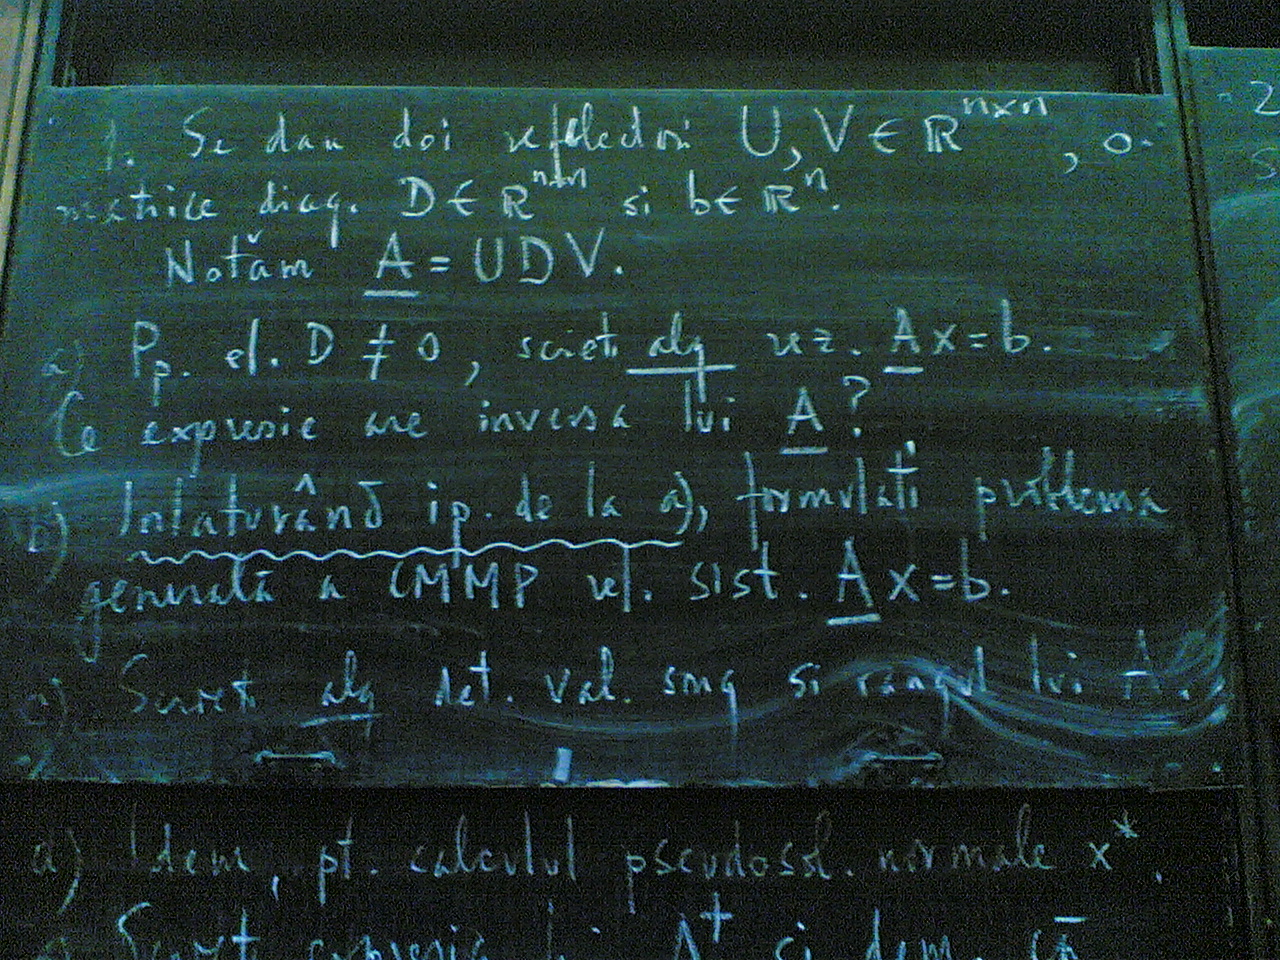 1. Se dau doi reflectori U, V ∈ ℝⁿˣⁿ, o
matrice diag. D ∈ ℝⁿˣⁿ si b ∈ ℝⁿ.
Notăm A = UDV.
a) Pp. el. D ≠ 0, scrieti alg rez. Ax = b.
Ce expresie are inversa lui A?
b) Inlaturând ip. de la a), formulati problema
generală a CMMP rel. sist. Ax = b.
c) Scrieti alg det. val. sing si rangul lui A.
d) Idem, pt. calculul pseudosol. normale x*.
Scrieti expresia lui A⁺ si dem. că
2